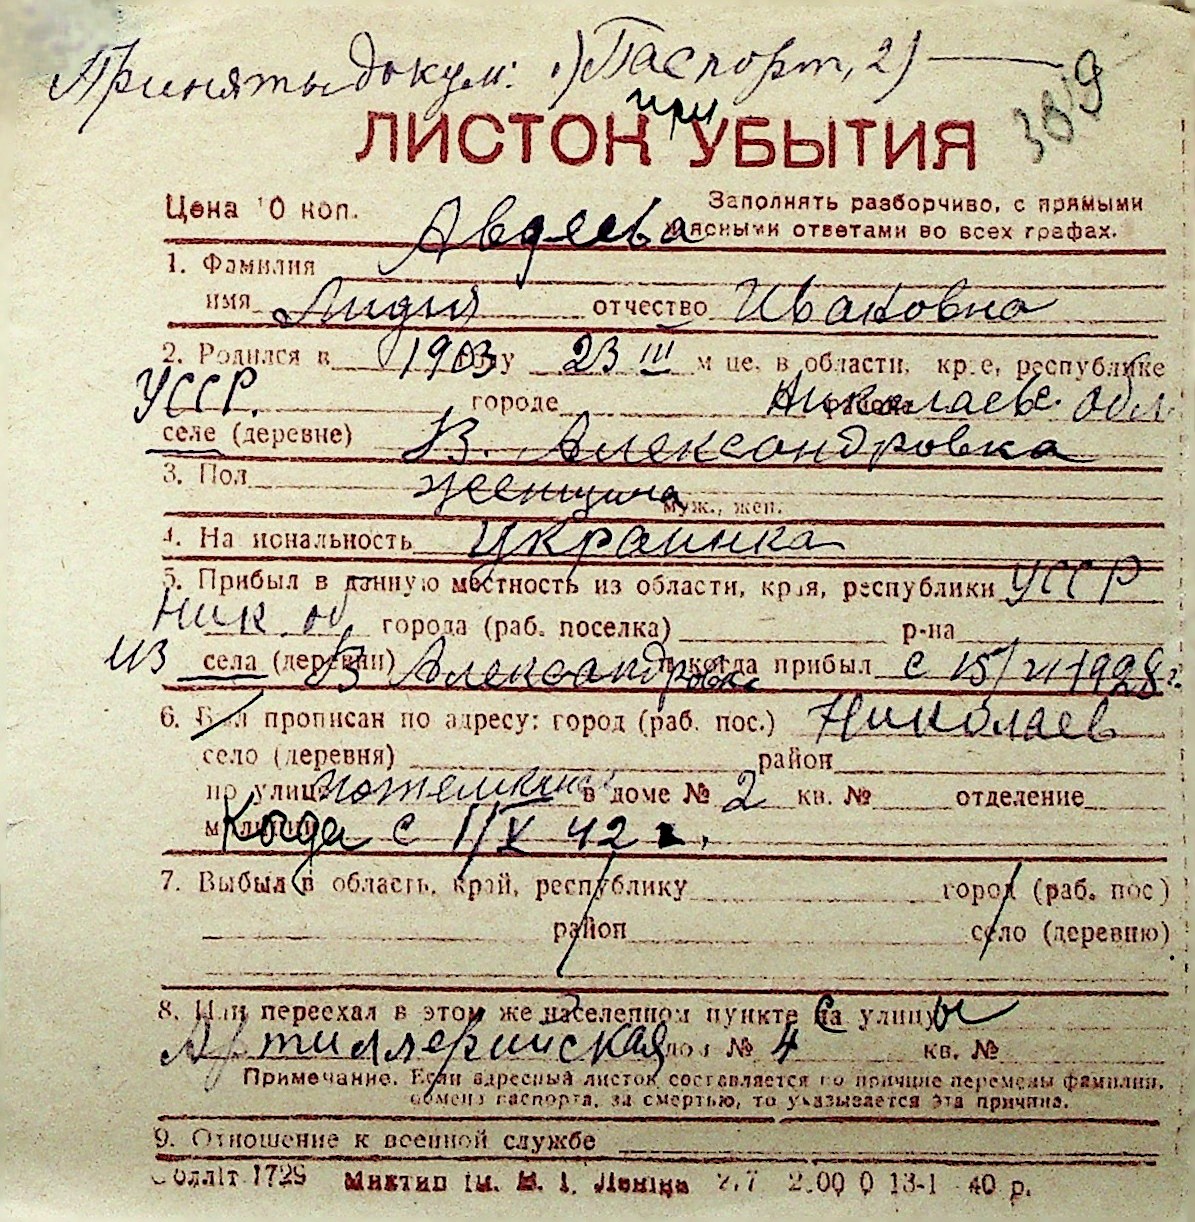 Приняты докум: 1) Паспорт, 2) —
при
ЛИСТОК УБЫТИЯ
Цена 10 коп.
Заполнять разборчиво, с прямыми
и ясными ответами во всех графах.
1. Фамилия Авдеева
имя Лидия отчество Ивановна
2. Родился в 1903 году 23 III м це, в области, крае, республике
УССР. городе районе Николаевс. обл
селе (деревне) В. Александровка
3. Пол женщина муж., жен.
4. Национальность украинка
5. Прибыл в данную местность из области, края, республики УССР
Ник. об города (раб. поселка) р-на
из села (деревни) В Александровка и когда прибыл с 15/VI 1928 г.
6. Был прописан по адресу: город (раб. пос.) Николаев
село (деревня) район
по улице в доме № 2 кв. № отделение
милиции Когда с 1/V 42 г.
7. Выбыл в область, край, республику город (раб. пос)
район село (деревню)
8. Или переехал в этом же населенном пункте на с улицы
Артиллерийская дом № 4 кв. №
Примечание. Если адресный листок составляется по причине перемены фамилии,
обмена паспорта, за смертью, то указывается эта причина.
9. Отношение к военной службе
Облліт 1729 Миктип ім. В. І. Леніна 13-1 40 р.